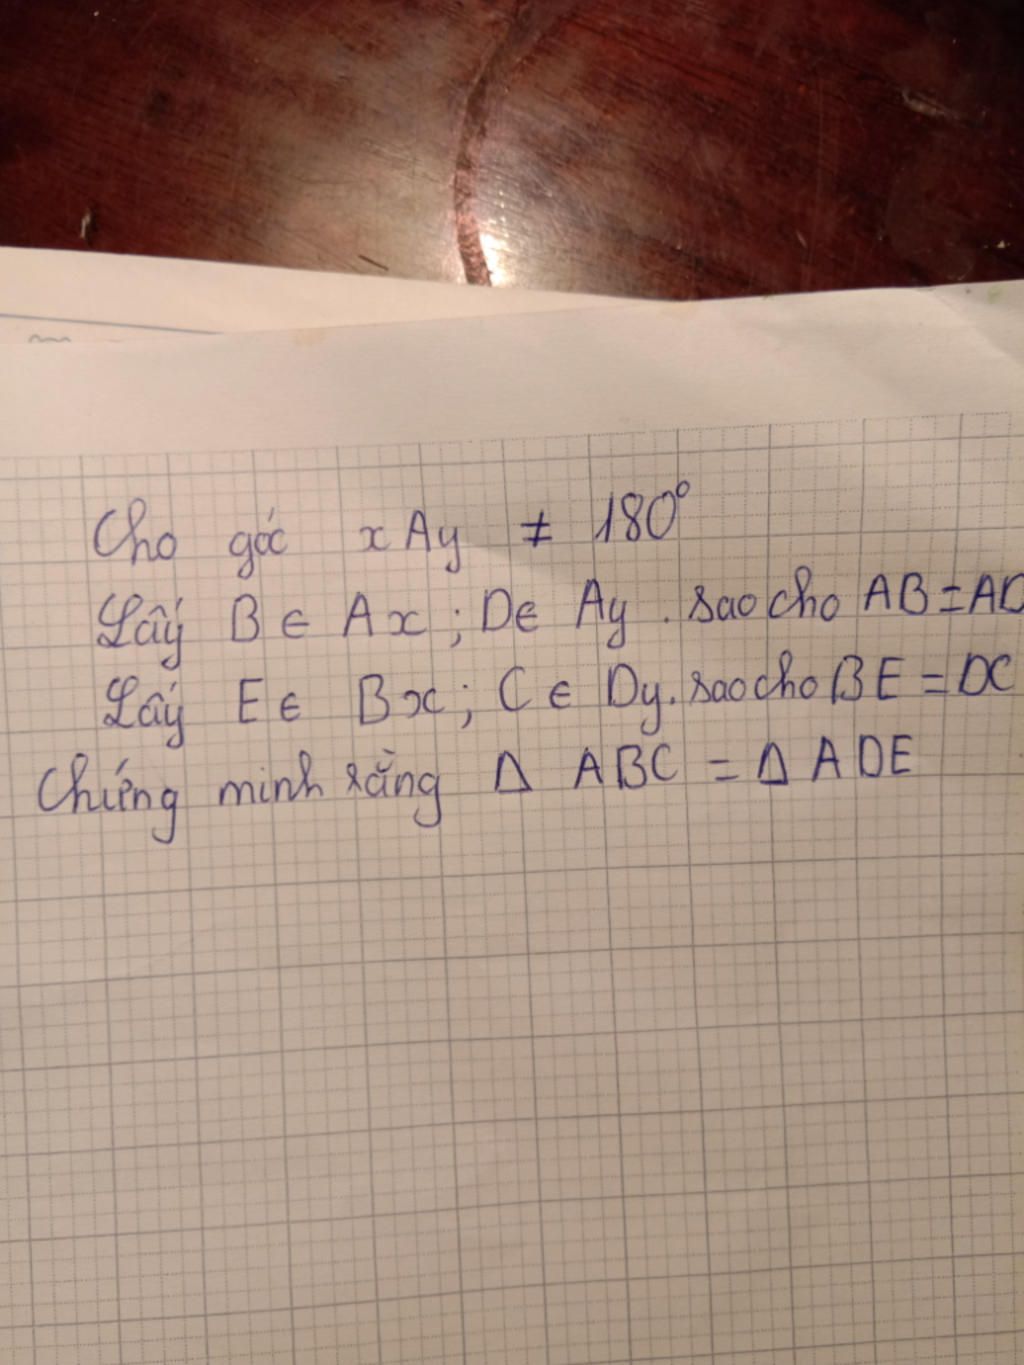 Cho góc xAy ≠ 180°
Lấy B ∈ Ax ; D ∈ Ay . sao cho AB = AD
Lấy E ∈ Bx ; C ∈ Dy . sao cho BE = DC
Chứng minh rằng Δ ABC = Δ ADE